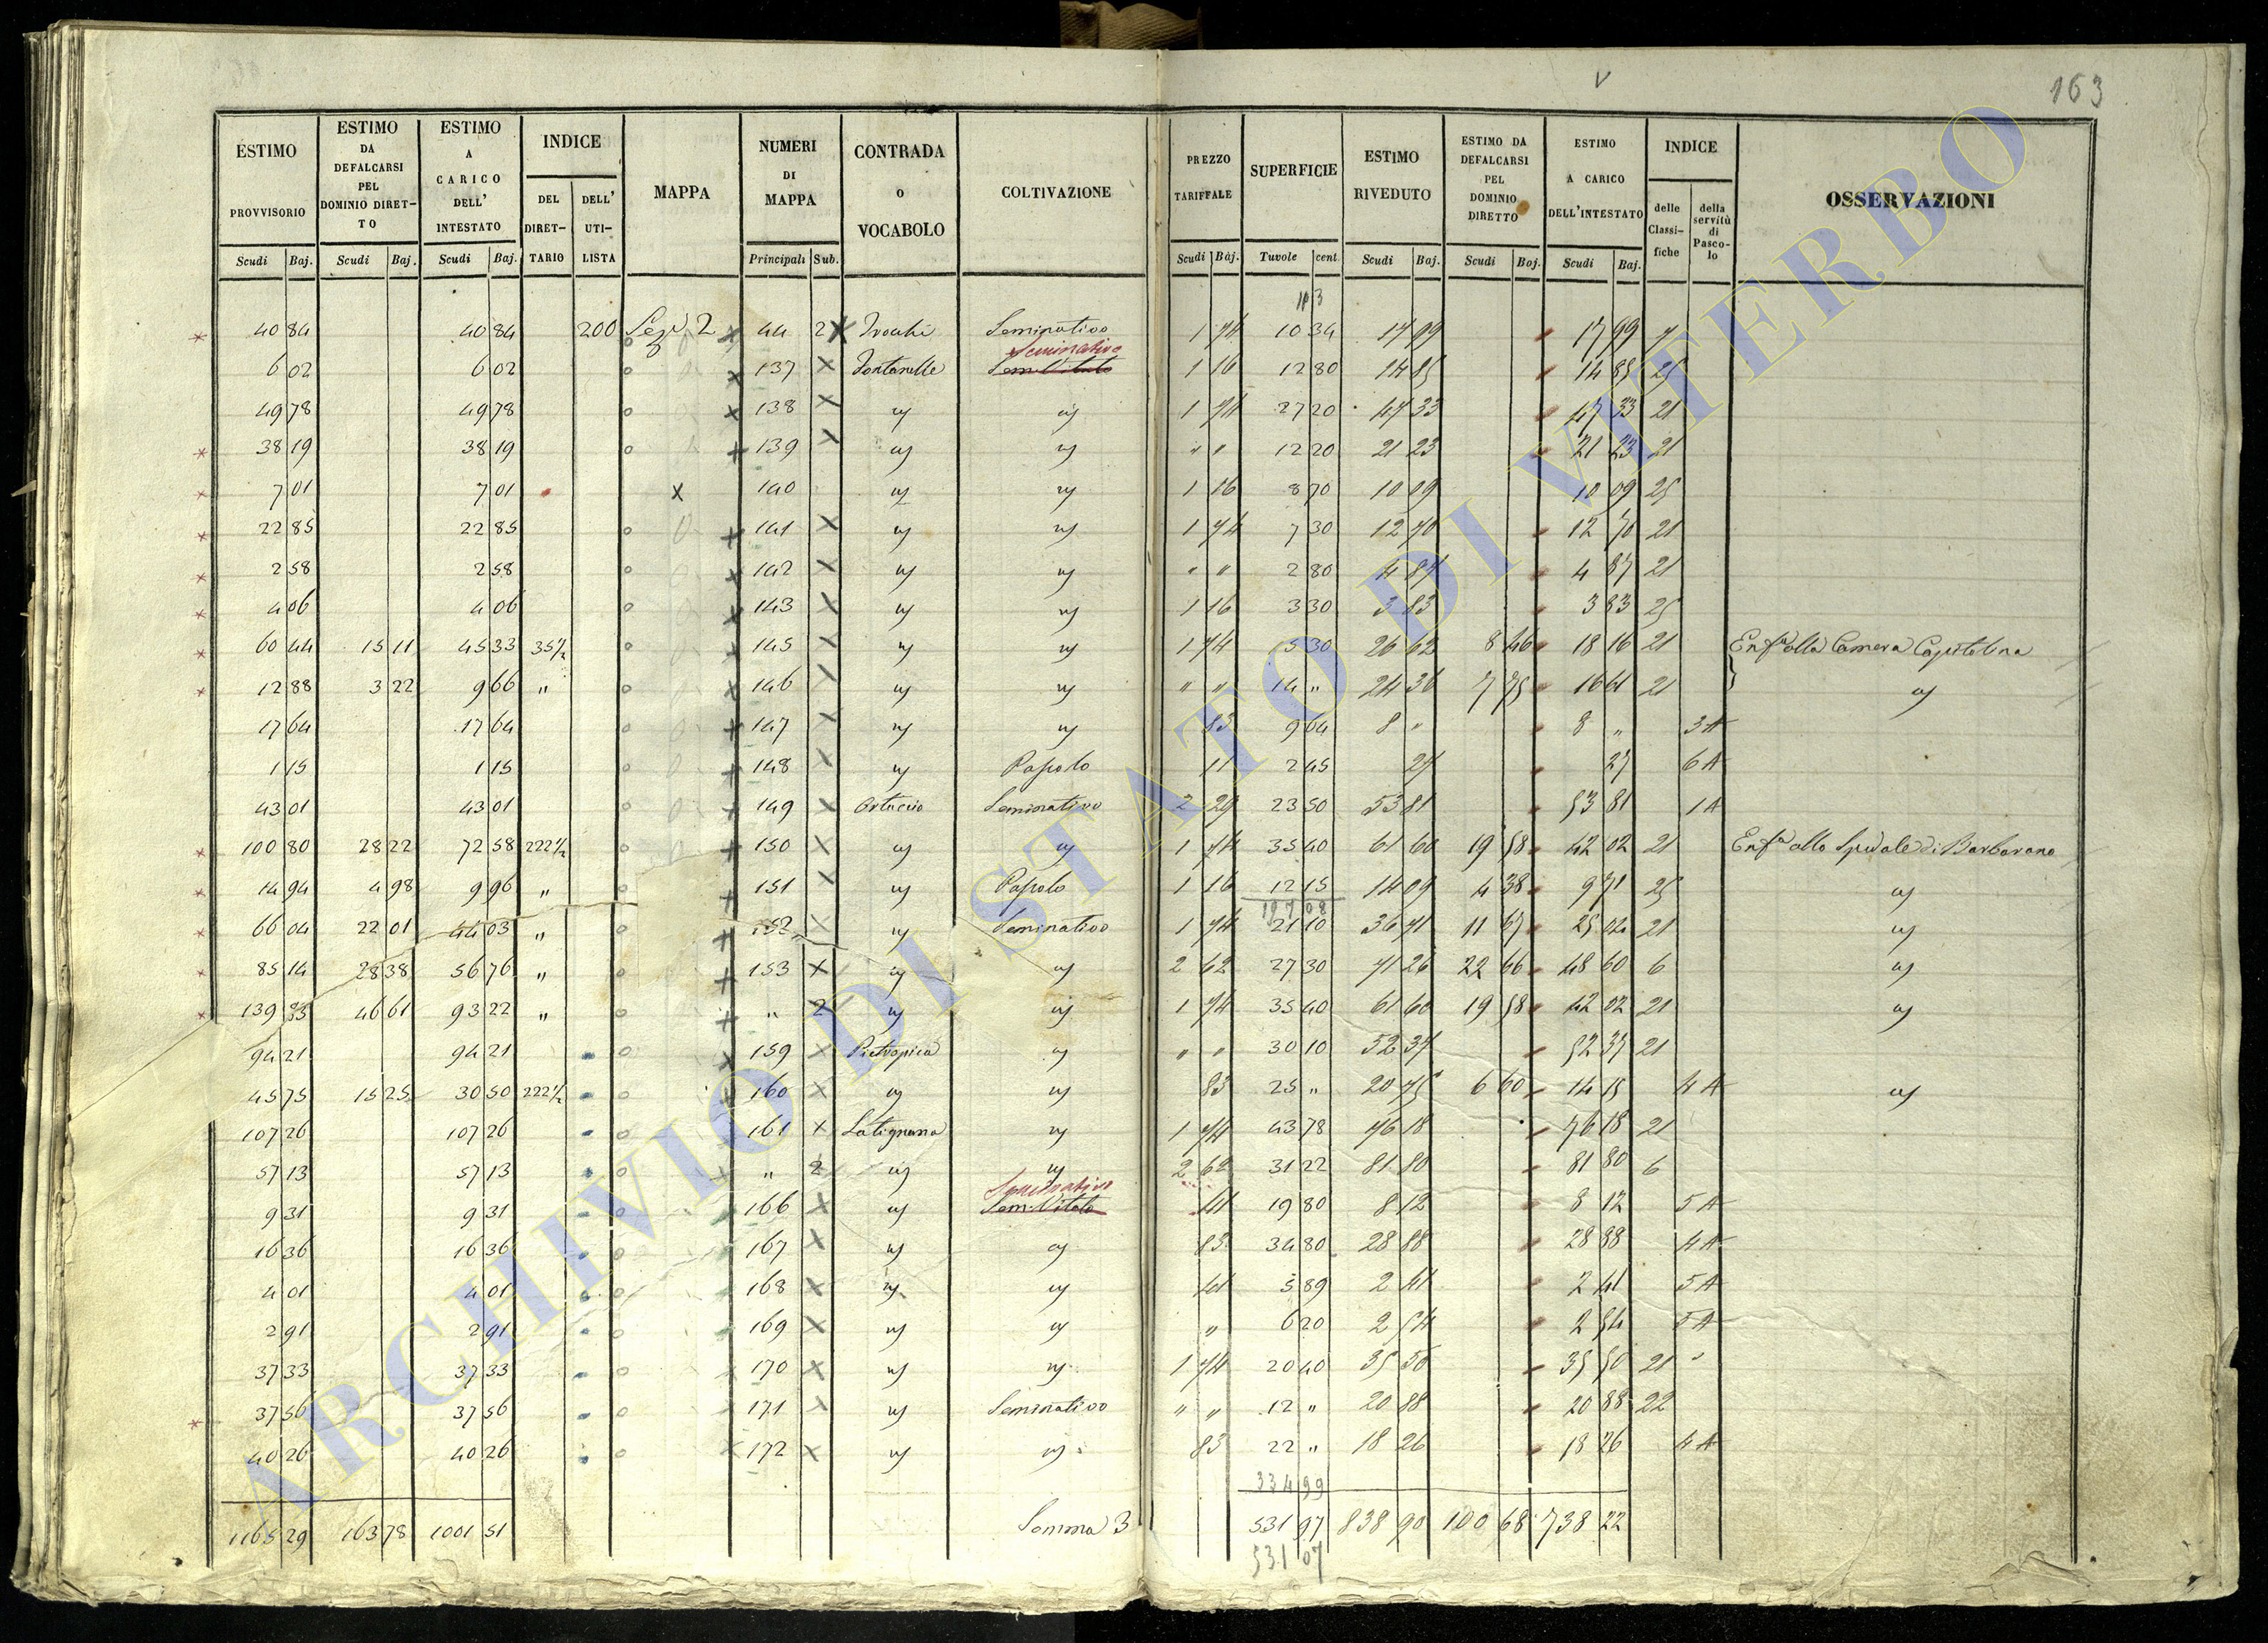 163
ESTIMO PROVVISORIO Scudi Baj. | ESTIMO DA DEFALCARSI PEL DOMINIO DIRET-TO Scudi Baj. | ESTIMO A CARICO DELL' INTESTATO Scudi Baj. | INDICE DEL DIRET-TARIO | DELL' UTI-LISTA | MAPPA | NUMERI DI MAPPA Principali Sub. | CONTRADA O VOCABOLO | COLTIVAZIONE | PREZZO TARIFFALE Scudi Baj. | SUPERFICIE Tavole cent | ESTIMO RIVEDUTO Scudi Baj. | ESTIMO DA DEFALCARSI PEL DOMINIO DIRETTO Scudi Baj. | ESTIMO A CARICO DELL'INTESTATO Scudi Baj. | INDICE delle Classi-fiche | della servitù di Pasco-lo | OSSERVAZIONI
40 84 | 40 84 | 200 | Sez. 2 | 44 | 2 | Seminativo | 1 74 | 10 34 | 17 99 | 17 99
6 02 | 6 02 | 137 | Fontanelle | Seminativo | 1 16 | 12 80 | 14 85 | 14 85 | 25
49 78 | 49 78 | 138 | " | " | 1 74 | 27 20 | 47 33 | 47 33 | 21
38 19 | 38 19 | 139 | " | " | " " | 12 20 | 21 23 | 21 23 | 21
7 01 | 7 01 | x | 140 | " | " | 1 16 | 8 70 | 10 09 | 10 09 | 25
22 85 | 22 85 | 141 | " | " | 1 74 | 7 30 | 12 70 | 12 70 | 21
2 58 | 2 58 | 142 | " | " | " " | 2 80 | 4 87 | 4 87 | 21
4 06 | 4 06 | 143 | " | " | 1 16 | 3 30 | 3 83 | 3 83 | 25
60 44 | 15 11 | 45 33 | 35 1/2 | 145 | " | " | 1 74 | 5 30 | 26 62 | 8 46 | 18 16 | 21 | Enfa alla Camera Capitolina
12 88 | 3 22 | 9 66 | " | 146 | " | " | " " | 14 " | 24 36 | 7 75 | 16 61 | 21 | "
17 64 | 17 64 | 147 | " | " | 83 | 9 64 | 8 " | 8 " | 3 A
1 15 | 1 15 | 148 | " | Pascolo | 11 | 2 45 | 27 | 27 | 6 A
43 01 | 43 01 | 149 | Ortuccio | Seminativo | 2 29 | 23 50 | 53 81 | 53 81 | 1 A
100 80 | 28 22 | 72 58 | 222 1/2 | 150 | " | " | 1 74 | 35 40 | 61 60 | 19 58 | 42 02 | 21 | Enfa allo Spedale di Barbarano
14 94 | 4 98 | 9 96 | " | 151 | " | Pascolo | 1 16 | 12 15 | 14 09 | 4 38 | 9 71 | 25 | "
66 04 | 22 01 | 44 03 | " | 152 | " | Seminativo | 1 74 | 21 10 | 36 71 | 11 67 | 25 04 | 21 | "
85 14 | 28 38 | 56 76 | " | 153 | " | " | 2 62 | 27 30 | 71 26 | 22 66 | 48 60 | 6 | "
139 83 | 46 61 | 93 22 | " | " | 2 | " | " | 1 74 | 35 40 | 61 60 | 19 58 | 42 02 | 21 | "
94 21 | 94 21 | 159 | Pietropica | " | " " | 30 10 | 52 37 | 52 37 | 21
45 75 | 15 25 | 30 50 | 222 1/2 | 160 | " | " | 83 | 25 " | 20 75 | 6 60 | 14 15 | 4 A | "
107 26 | 107 26 | 161 | " | 1 74 | 43 78 | 76 18 | 76 18 | 21
57 13 | 57 13 | " | 2 | " | " | 2 62 | 31 22 | 81 80 | 81 80 | 6
9 31 | 9 31 | 166 | " | Seminativo | 41 | 19 80 | 8 12 | 8 12 | 5 A
16 36 | 16 36 | 167 | " | " | 83 | 34 80 | 28 88 | 28 88 | 4 A
4 01 | 4 01 | 168 | " | " | 41 | 5 89 | 2 41 | 2 41 | 5 A
2 91 | 2 91 | 169 | " | " | " | 6 20 | 2 54 | 2 54 | 5 A
37 33 | 37 33 | 170 | " | " | 1 74 | 20 40 | 35 50 | 35 50 | 21
37 56 | 37 56 | 171 | " | Seminativo | " " | 12 " | 20 88 | 20 88 | 22
40 26 | 40 26 | 172 | " | " | 83 | 22 " | 18 26 | 18 26 | 4 A
334 99
1165 29 | 163 78 | 1001 51 | Somma 3 | 531 97 | 838 90 | 100 68 | 738 22
531 07
ARCHIVIO DI STATO DI VITERBO